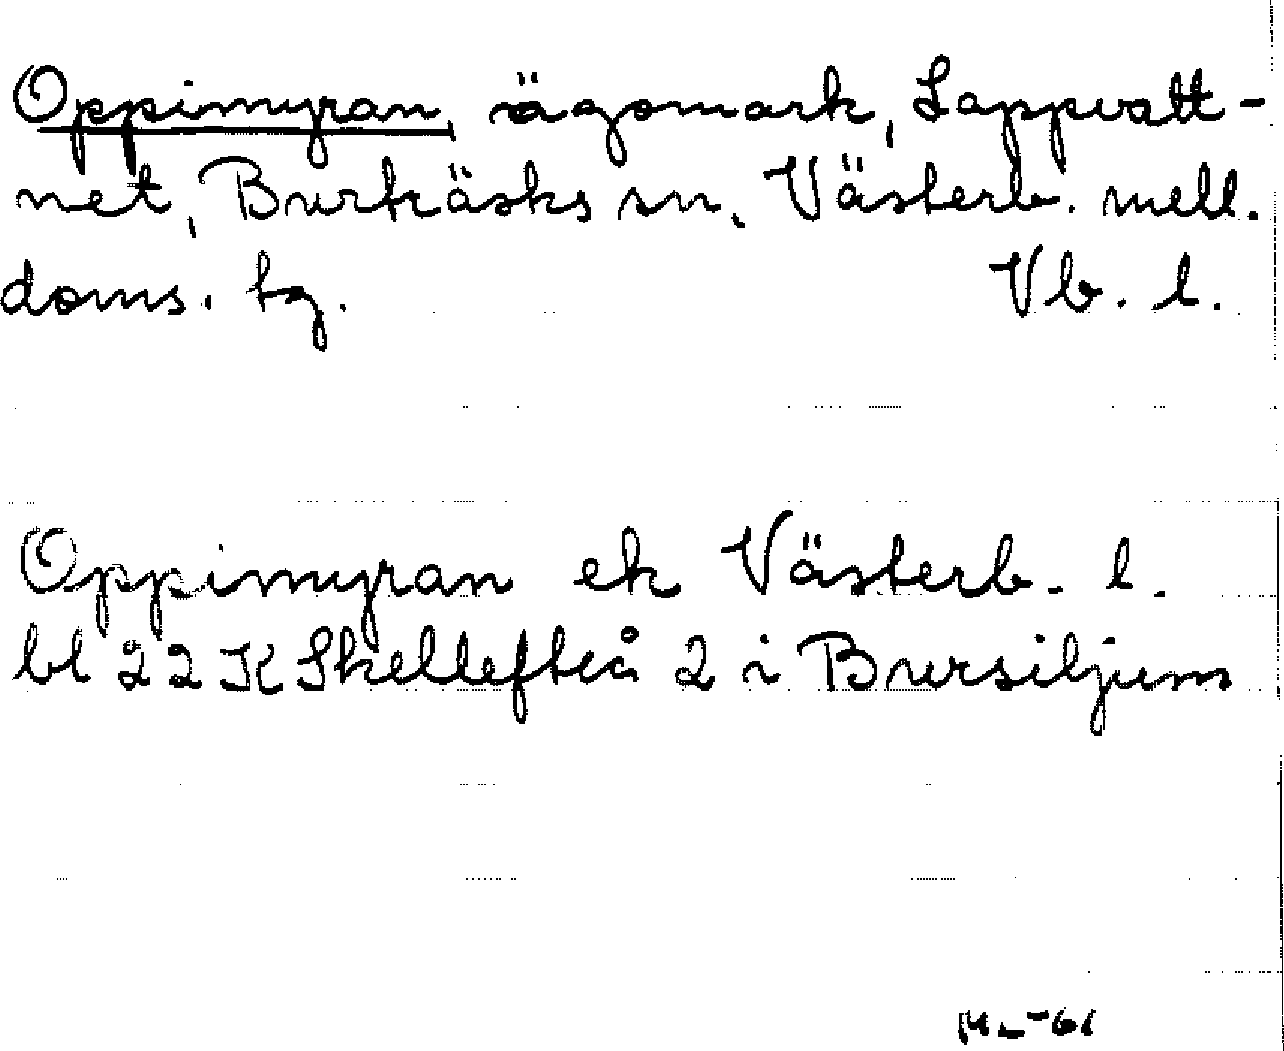 Oppimyran, ägomark, Lappvatt-
net, Burträsks sn, Västerb. mell.
doms. tg. Vb. l.
Oppimyran ek Västerb. l.
bl 22 K Skellefteå 2 i Bursiljum
ML-61